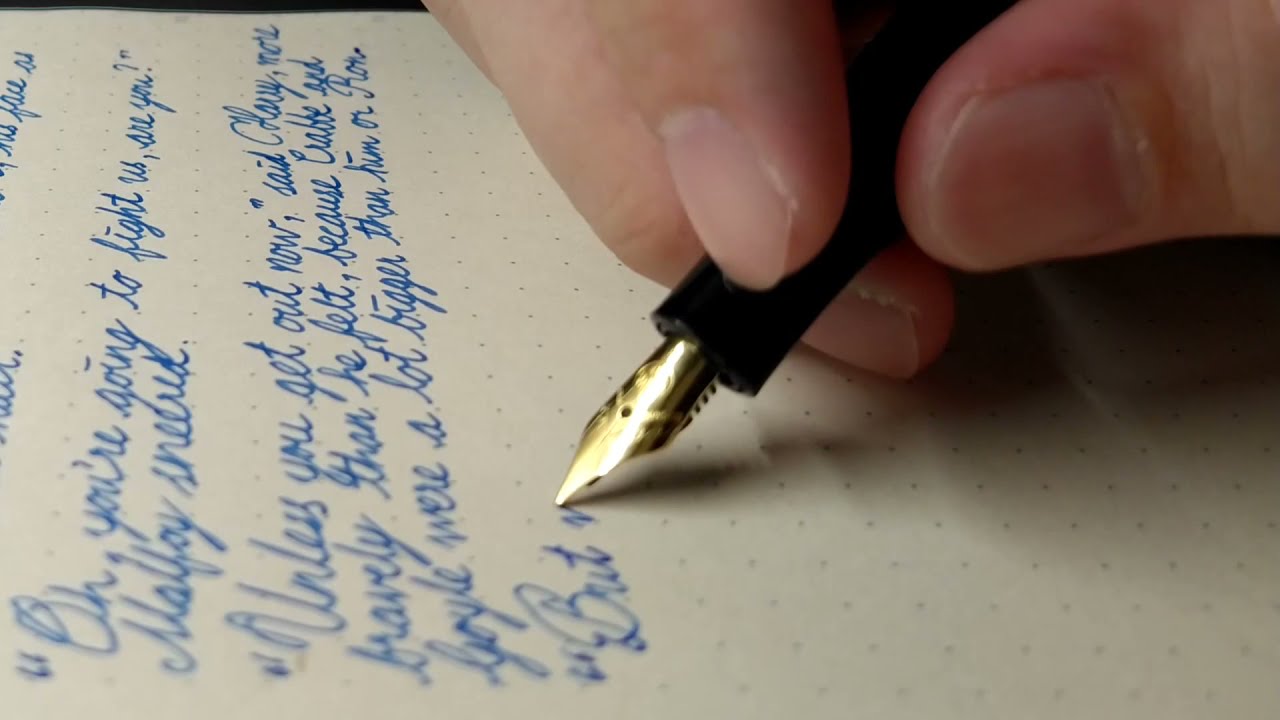 his face is
"Oh, you're going to fight us, are you?"
Malfoy sneered.
"Unless you get out now," said Harry, more
bravely than he felt, because Crabbe and
Goyle were a lot bigger than him or Ron.
"But